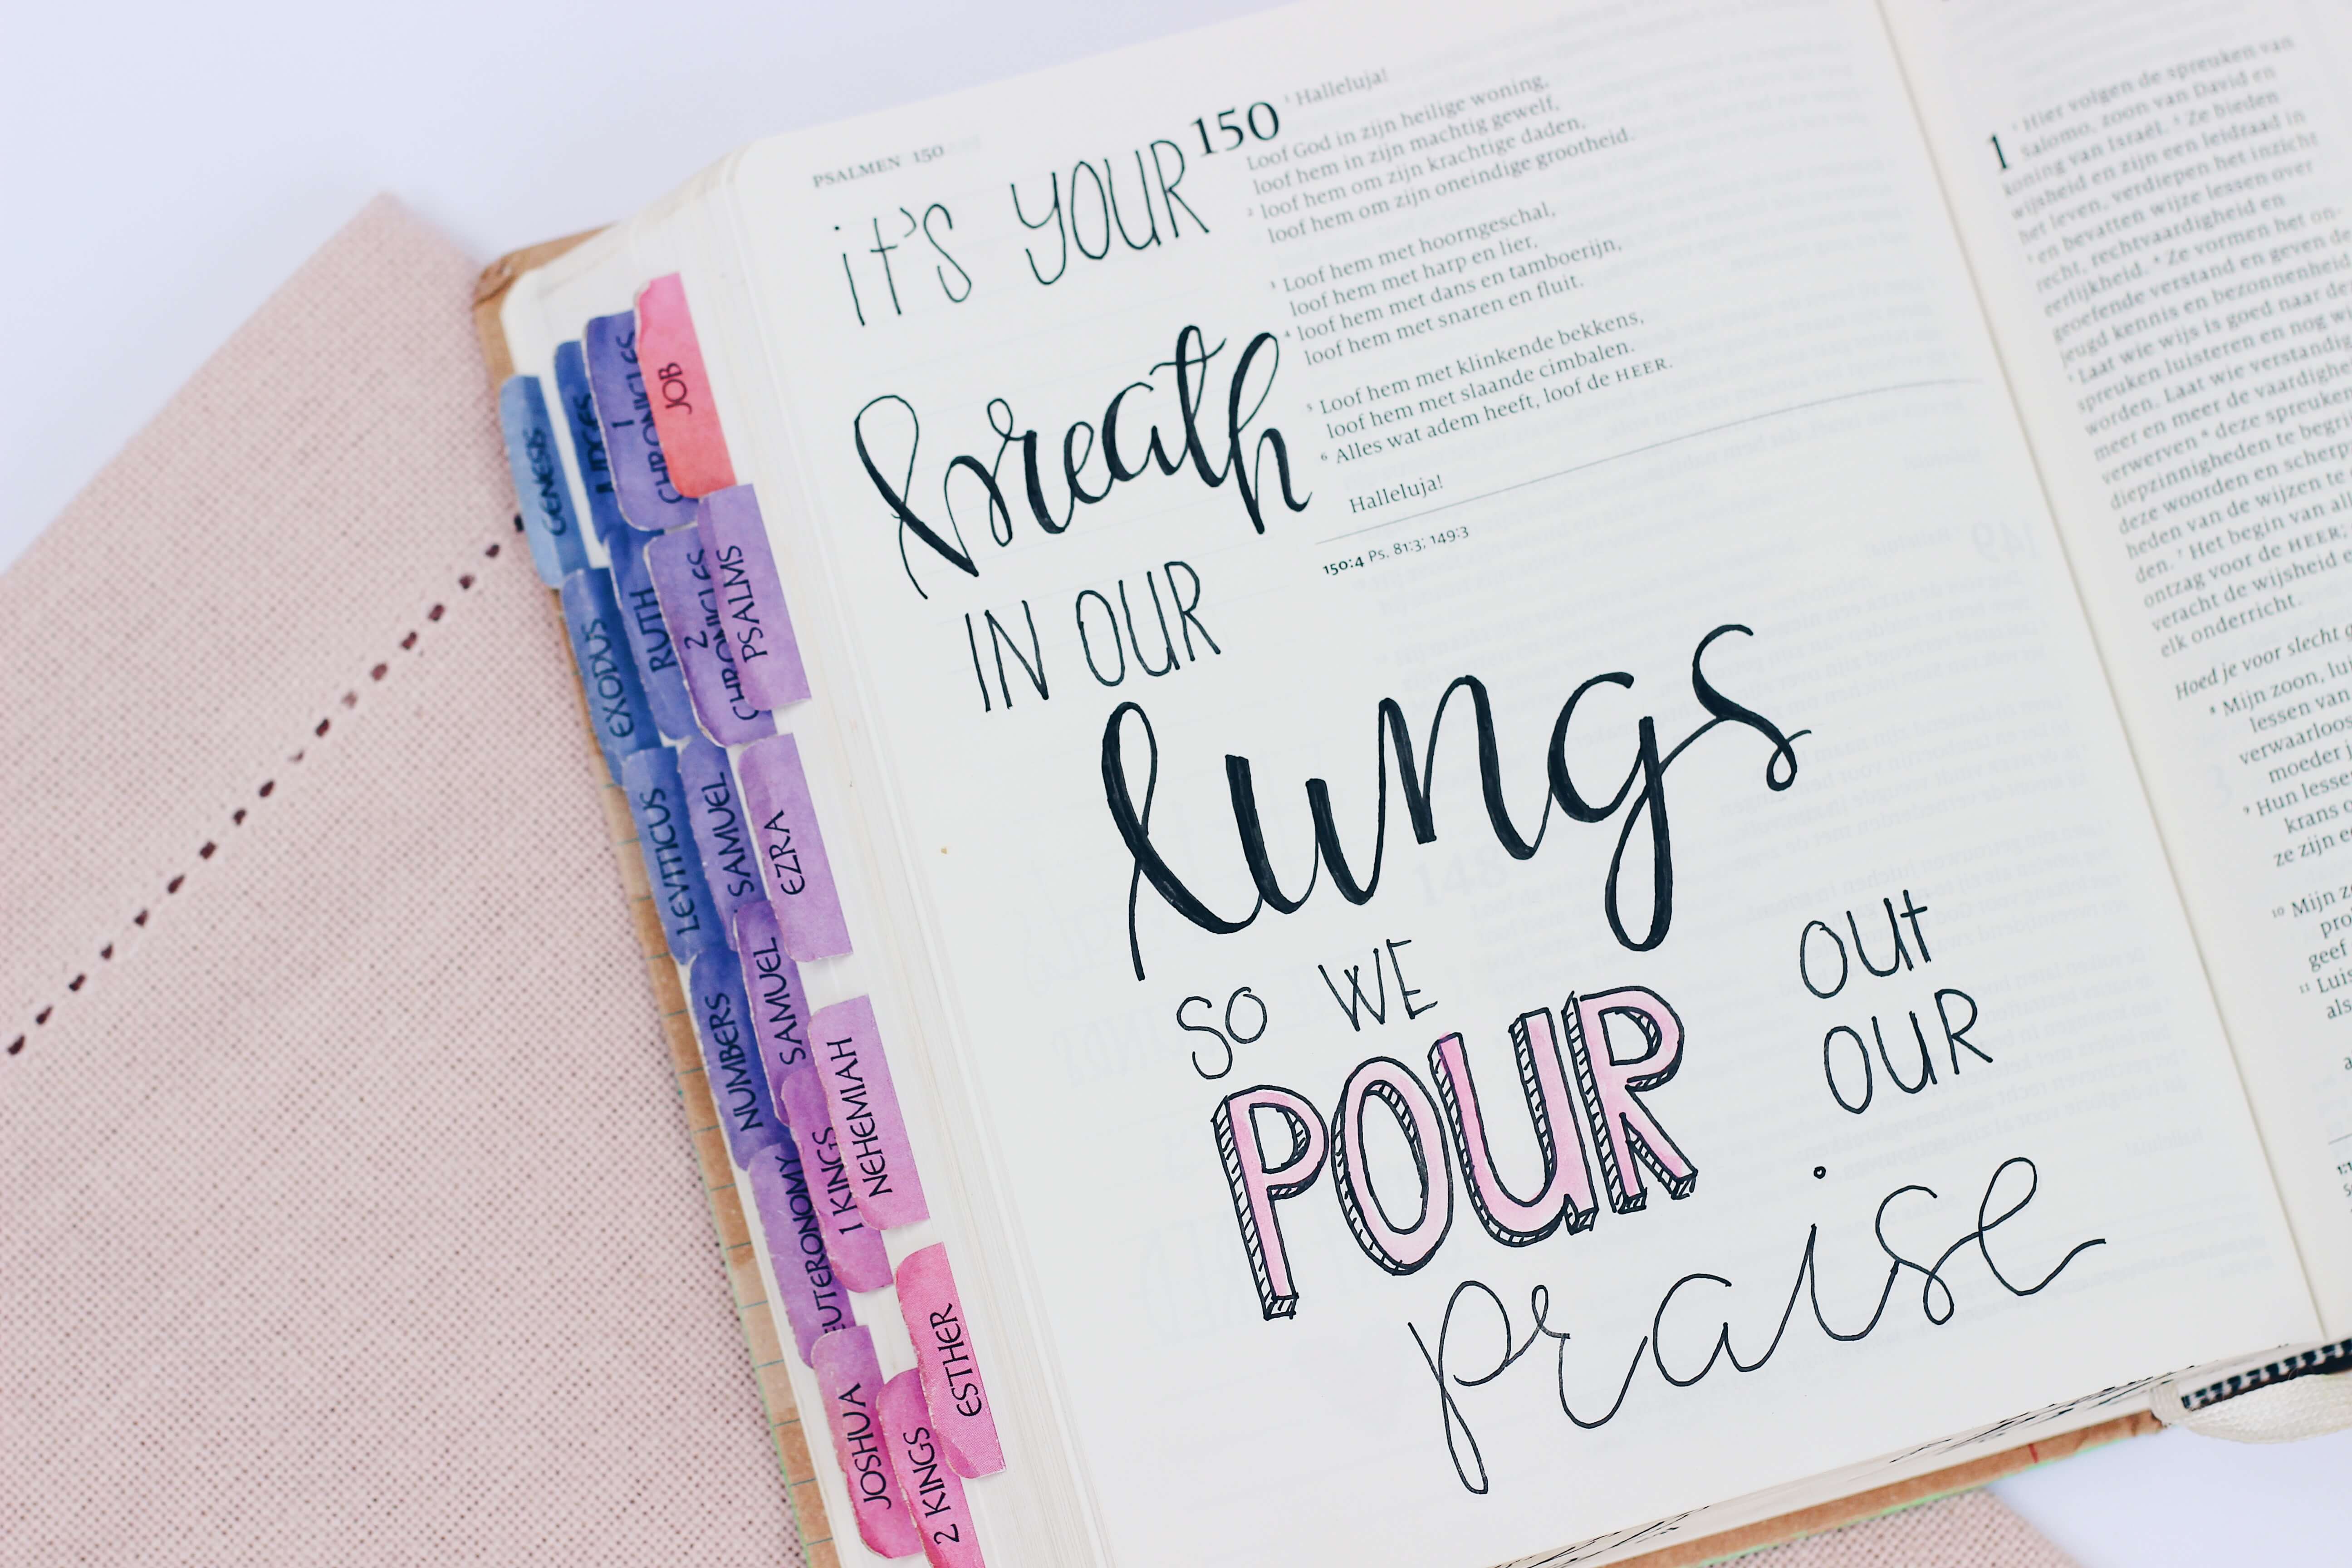 PSALMEN 150
it's YOUR
breath
IN OUR
lungs
SO WE
POUR
OUt
OUR
praise
150
1 Halleluja!
Loof God in zijn heilige woning,
loof hem in zijn machtig gewelf,
2 loof hem om zijn krachtige daden,
loof hem om zijn oneindige grootheid.
3 Loof hem met hoorngeschal,
loof hem met harp en lier.
4 loof hem met dans en tamboerijn,
loof hem met snaren en fluit.
5 Loof hem met klinkende bekkens,
loof hem met slaande cimbalen.
6 Alles wat adem heeft, loof de HEER.
Halleluja!
150:4 Ps. 81:3; 149:3
1
1 Hier volgen de spreuken van
Salomo, zoon van David en
koning van Israël. 2 Ze bieden
wijsheid en zijn een leidraad in
het leven, verdiepen het inzicht
3 en bevatten wijze lessen over
recht, rechtvaardigheid en
eerlijkheid. 4 Ze vormen het on-
geoefende verstand en geven de
jeugd kennis en bezonnenheid
5 Laat wie wijs is goed naar de
spreuken luisteren en nog
worden. Laat wie verstandig
meer en meer de vaardighe
verwerven 6 deze spreuken
diepzinnigheden te begri
deze woorden en scherp
heden van de wijzen te
den. 7 Het begin van al
ontzag voor de HEER.
veracht de wijsheid e
elk onderricht.
Hoed je voor slecht
8 Mijn zoon, lui
lessen van
verwaarloos
moeder j
9 Hun lesse
krans
ze zijn
10 Mijn z
geef
11 Luis
als
GENESIS
EXODUS
LEVITICUS
NUMBERS
EUTERONOMY
JOSHUA
RUTH
SAMUEL
SAMUEL
1 KINGS
2 KINGS
1
CHRONICLES
2
CHRONICLES
EZRA
NEHEMIAH
ESTHER
JOB
PSALMS